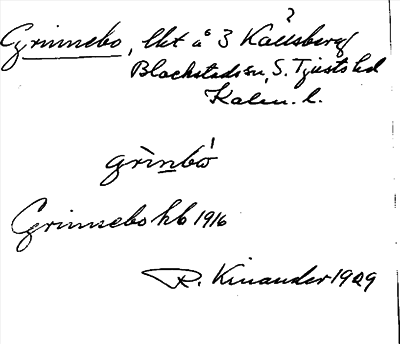 ?
Grinnebo, lht å 3 Källsberg
Blackstads sn, S. Tjusts hd
Kalm. l.
grìnbò
Grinnebo kb 1916
R. Kinander 1909